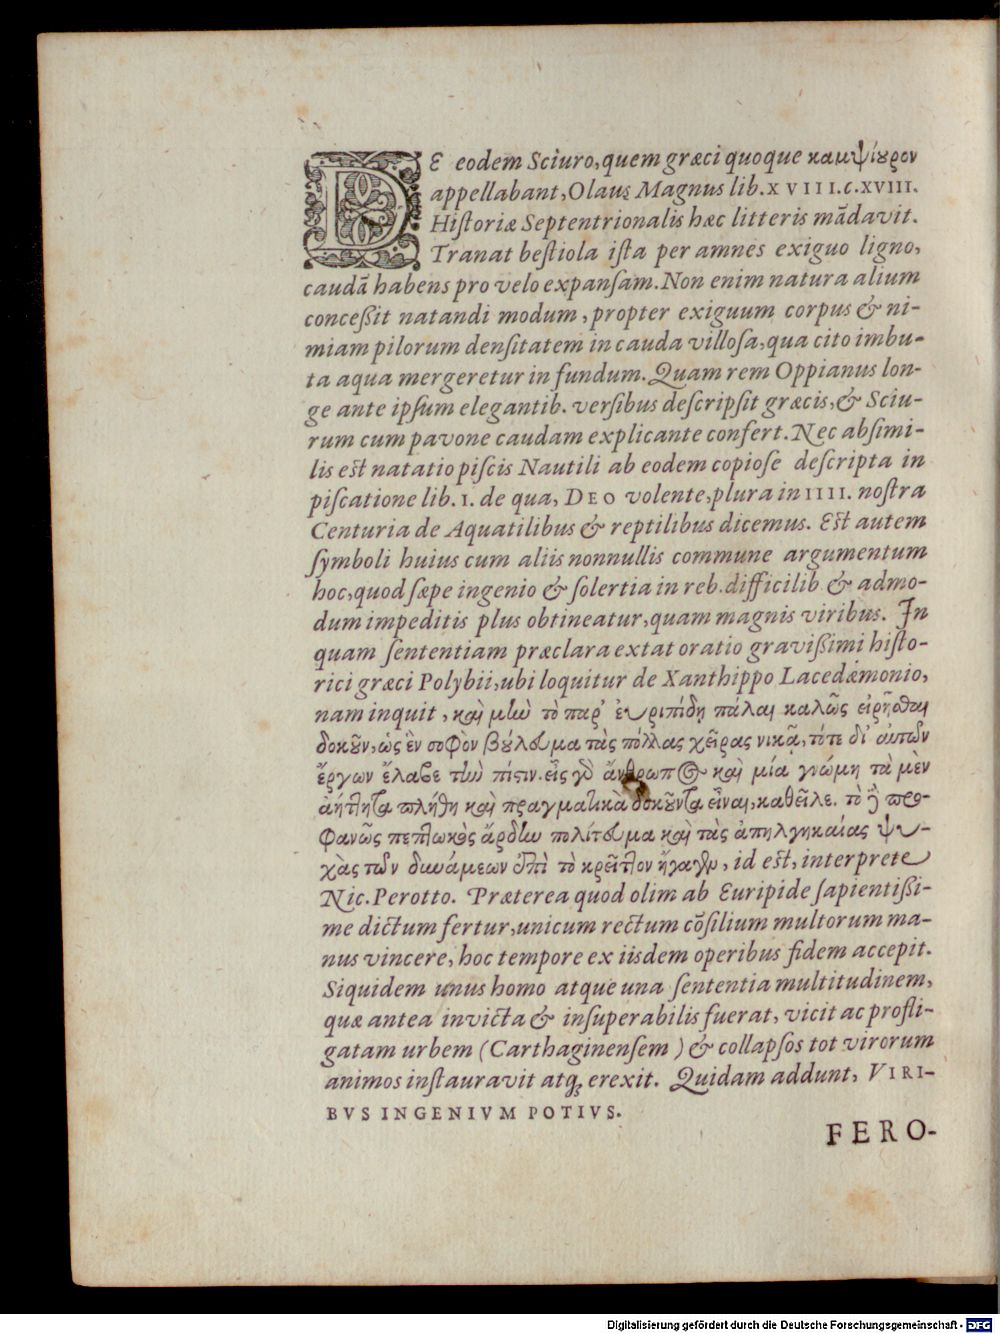 DE eodem Sciuro, quem græci quoque καμψίουρον
appellabant, Olaus Magnus lib. XVIII. c. XVIII.
Historiæ Septentrionalis hæc litteris mādavit.
Tranat bestiola ista per amnes exiguo ligno,
caudā habens pro velo expansam. Non enim natura alium
concessit natandi modum, propter exiguum corpus & ni-
miam pilorum densitatem in cauda villosa, qua cito imbu-
ta aqua mergeretur in fundum. Quam rem Oppianus lon-
ge ante ipsum elegantib. versibus descripsit græcis, & Sciu-
rum cum pavone caudam explicante confert. Nec absimi-
lis est natatio piscis Nautili ab eodem copiose descripta in
piscatione lib. I. de qua, DEO volente, plura in IIII. nostra
Centuria de Aquatilibus & reptilibus dicemus. Est autem
symboli huius cum aliis nonnullis commune argumentum
hoc, quod sæpe ingenio & solertia in reb. difficilib. & admo-
dum impeditis plus obtineatur, quam magnis viribus. In
quam sententiam præclara extat oratio gravissimi histo-
rici græci Polybii, ubi loquitur de Xanthippo Lacedæmonio,
nam inquit, καὶ μὴν τὸ παρ' ἐυριπίδῃ πάλαι καλῶς εἰρῆσθαι
δοκοῦν, ὡς ἓν σοφὸν βούλευμα τὰς πόλλας χεῖρας νικᾷ, τότε δι' αὐτῶν
ἔργων ἔλαβε τὴν πίστιν. εἷς γὰρ ἄνθρωπος καὶ μία γνώμη τὰ μὲν
ἀήττητα πλήθη καὶ πραγματικὰ δοκοῦντα εἶναι, καθεῖλε. τὸ δὲ προ-
φανῶς πεπτωκὸς ἄρδην πολίτευμα καὶ τὰς ἀπηλγηκυίας ψυ-
χὰς τῶν δυνάμεων ἐπὶ τὸ κρεῖττον ἤγαγεν, id est, interprete
Nic. Perotto. Præterea quod olim ab Euripide sapientissi-
me dictum fertur, unicum rectum cōsilium multorum ma-
nus vincere, hoc tempore ex iisdem operibus fidem accepit.
Siquidem unus homo atque una sententia multitudinem,
quæ antea invicta & insuperabilis fuerat, vicit ac profli-
gatam urbem (Carthaginensem) & collapsos tot virorum
animos instauravit atq; erexit. Quidam addunt, VIRI-
BVS INGENIVM POTIVS.
FERO-
Digitalisierung gefördert durch die Deutsche Forschungsgemeinschaft - DFG